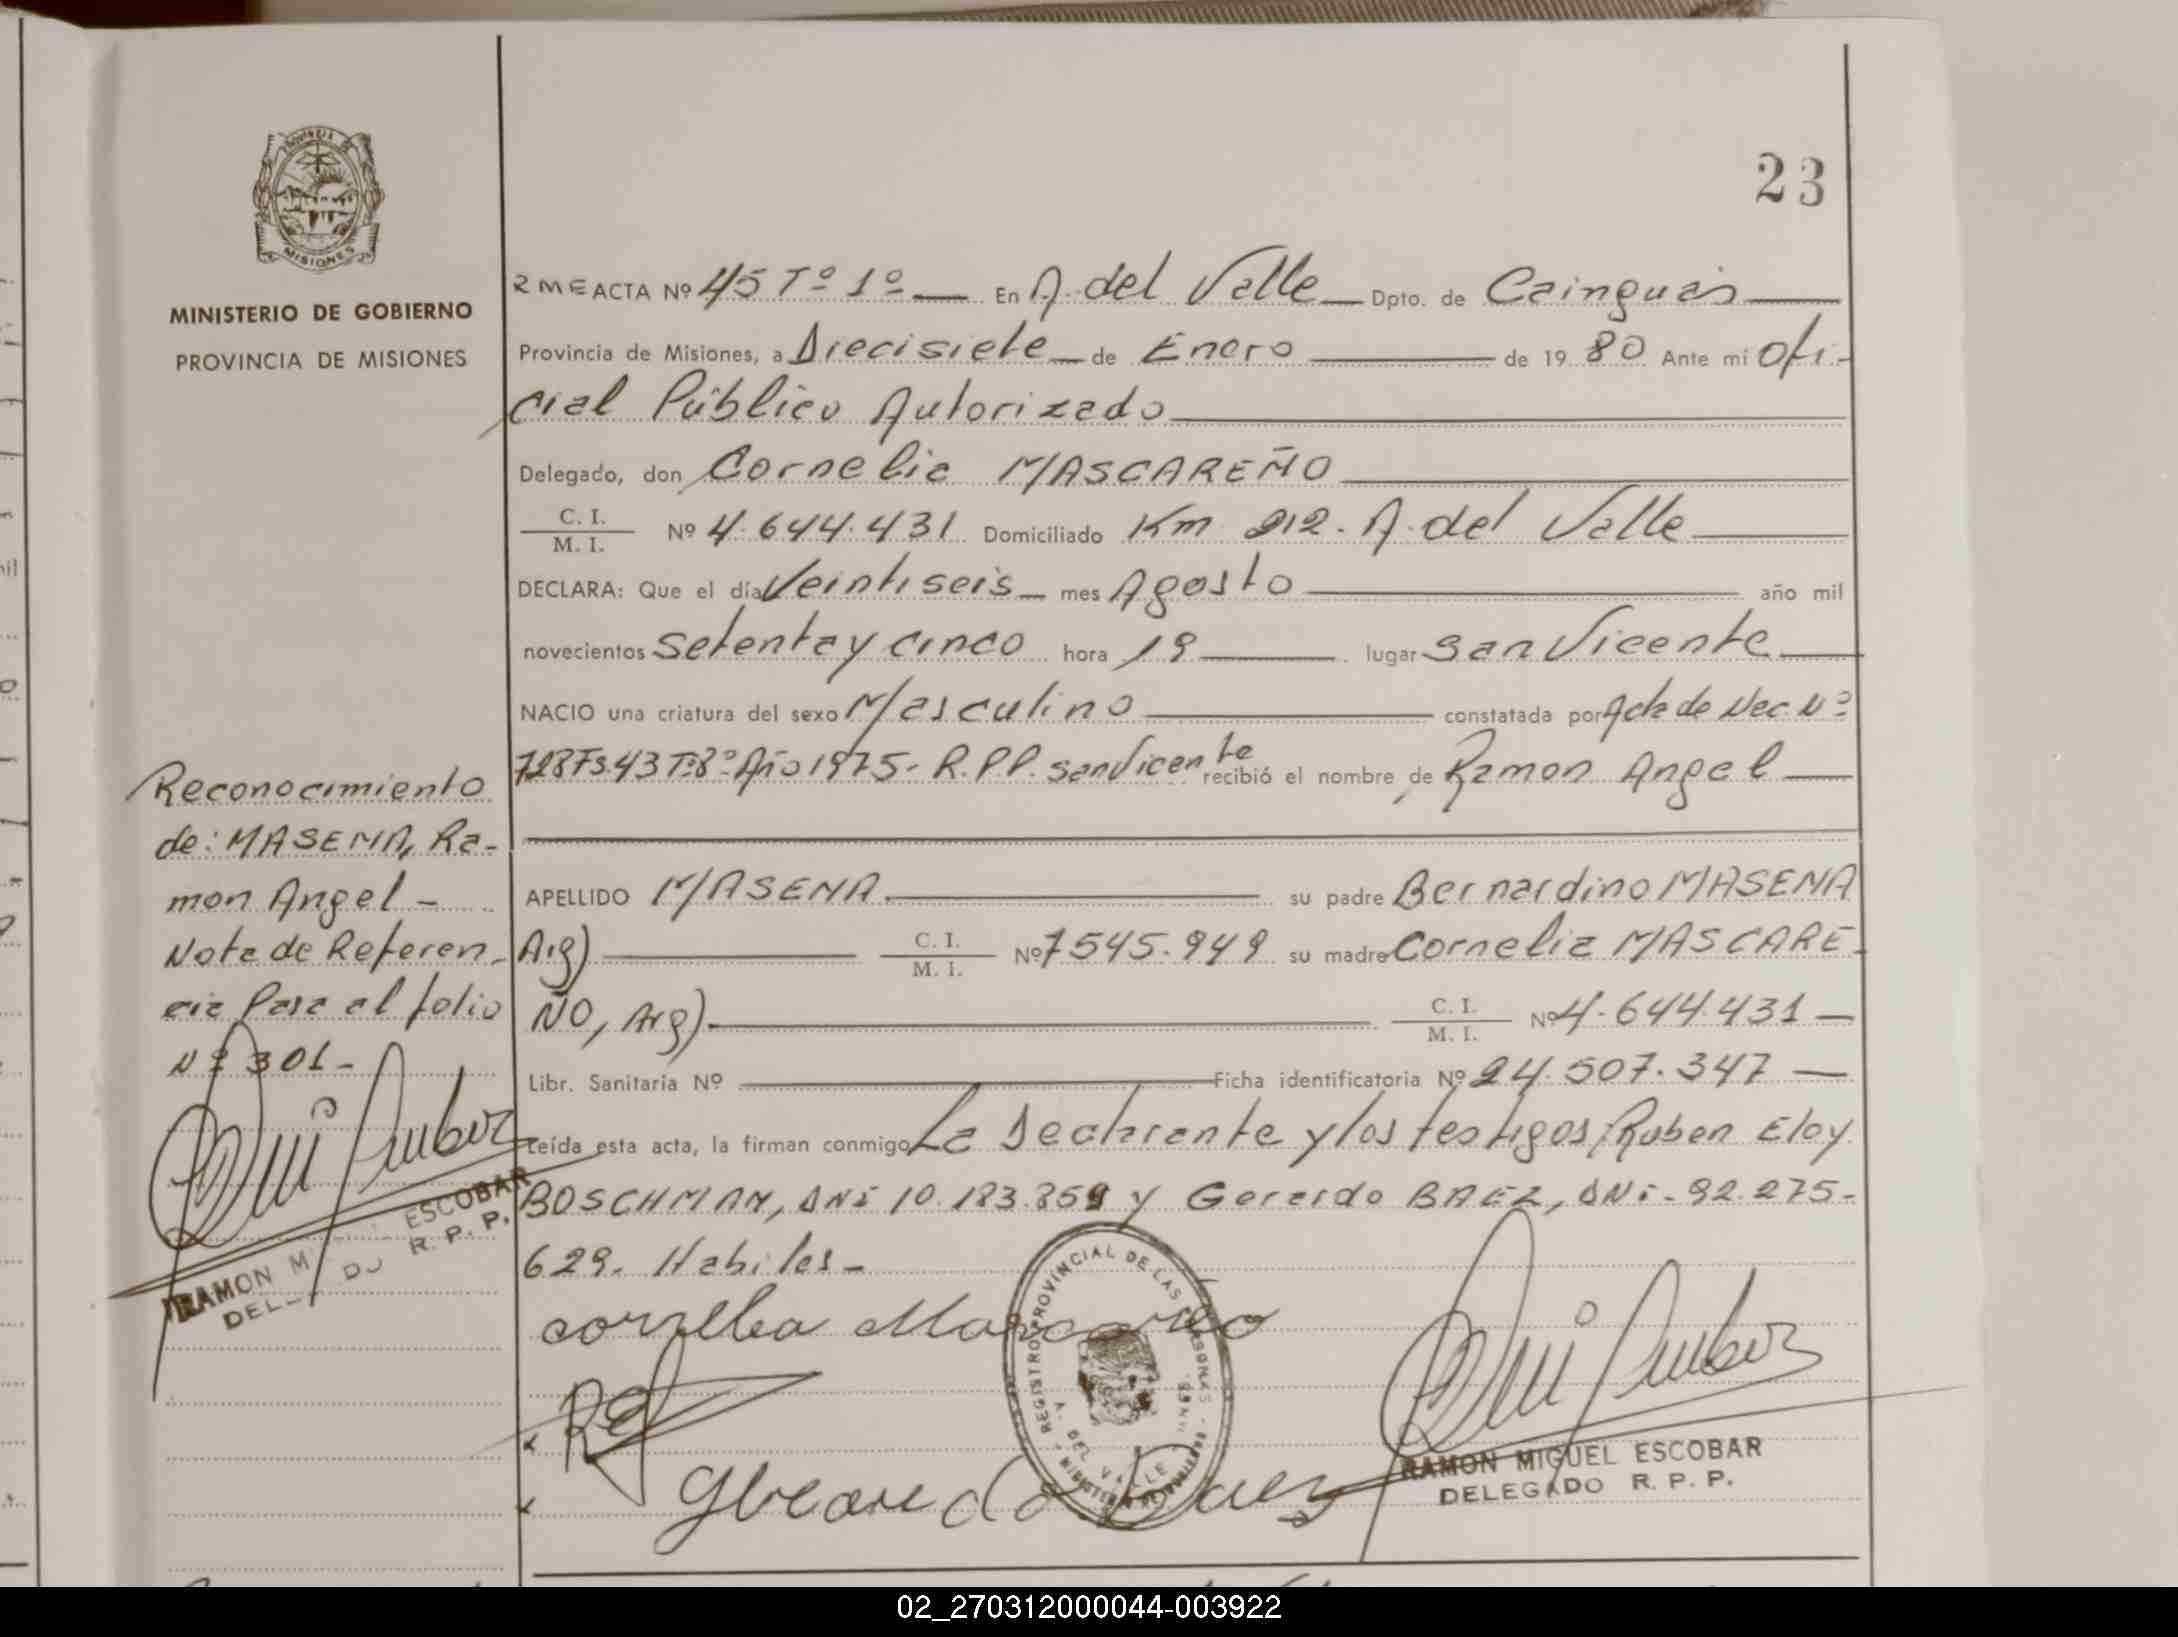 23
PROVINCIA DE
MISIONES
MINISTERIO DE GOBIERNO
PROVINCIA DE MISIONES
RME ACTA Nº 45 Tº 1º En A. del Valle Dpto. de Cainguás
Provincia de Misiones, a Diecisiete de Enero de 1980 Ante mi Ofi-
cial Público Autorizado
Delegado, don Cornelia MASCAREÑO
C. I.
M. I. Nº 4.644.431 Domiciliado Km 212. A. del Valle
DECLARA: Que el día Veintiseis mes Agosto año mil
novecientos Setenta y cinco hora 19 lugar San Vicente
NACIO una criatura del sexo Masculino constatada por Acta de Nac. Nº
728 Fs 43 Tº 8º Año 1975- R.P.P. San Vicente recibió el nombre de Ramon Angel
APELLIDO MASENA su padre Bernardino MASENA
Arg) C. I.
M. I. Nº 7545.949 su madre Cornelia MASCARE-
ÑO, Arg) C. I.
M. I. Nº 4.644.431
Libr. Sanitaria Nº Ficha identificatoria Nº 24.507.347
Leída esta acta, la firman conmigo La Declarante y los testigos, Ruben Eloy
BOSCHMAN, DNi 10.183.859 y Gerardo BAEZ, DNi- 92.275-
629. Habiles-
Reconocimiento
de: MASENA, Ra-
mon Angel -
Nota de Referen-
cia Pasa al folio
Nº 301-
RAMON M ESCOBAR
R. P. P.
Cornelia Mascareño
REGISTRO PROVINCIAL DE LAS PERSONAS
A. DEL VALLE
RAMON MIGUEL ESCOBAR
DELEGADO R. P. P.
02_270312000044-003922